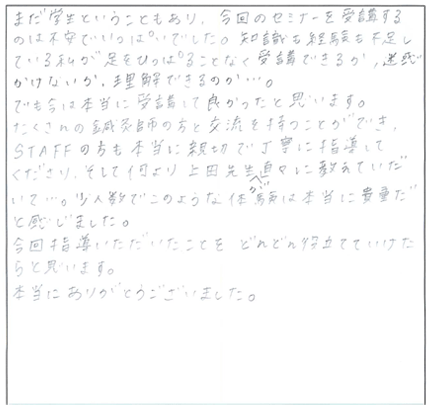 まだ学生ということもあり、今回のセミナーを受講する
のは不安でいっぱいでした。知識も経験も不足し
ている私が足をひっぱることなく受講できるか、迷惑
かけないか、理解できるのか…。
でも今は本当に受講して良かったと思います。
たくさんの鍼灸師の方と交流を持つことができ、
STAFFの方も本当に親切で丁寧に指導して
くださり、そして何より上田先生が直々に教えていただ
いて…。少人数でこのような体験は本当に貴重だ
と感じました。
今回指導いただいたことを どんどん役立てていけた
らと思います。
本当にありがとうございました。